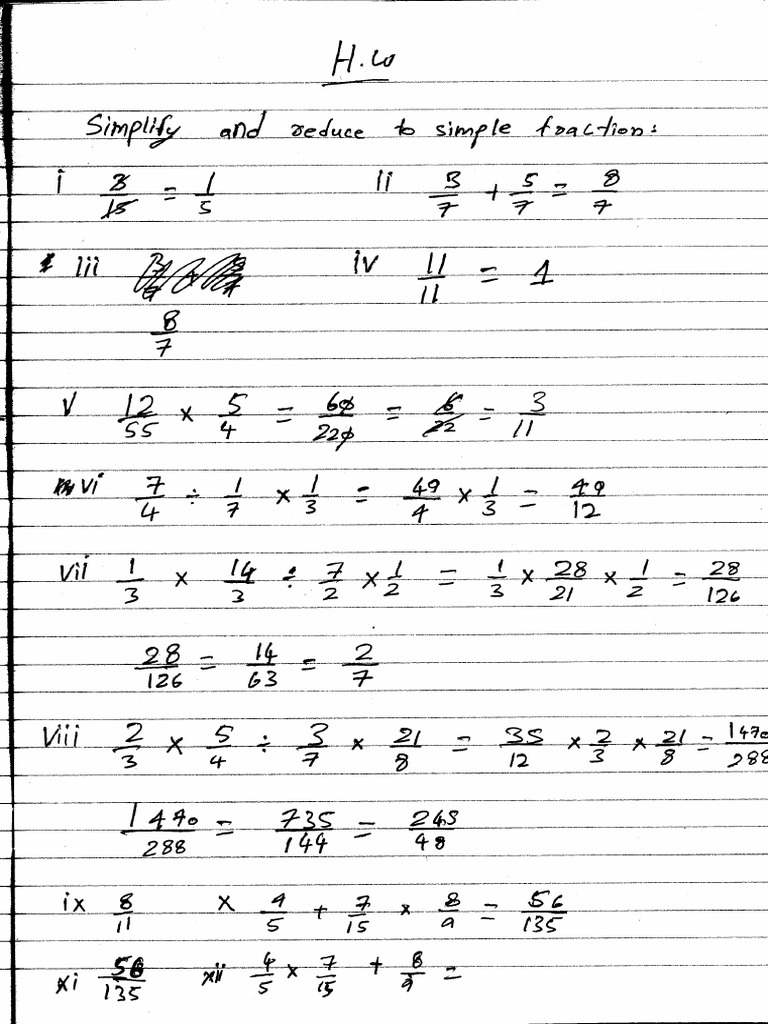 H.W
Simplify and reduce to simple fraction:
i 3/15 = 1/5 ii 3/7 + 5/7 = 8/7
iii iv 11/11 = 1
8/7
V 12/55 × 5/4 = 60/220 = 6/22 = 3/11
vi 7/4 ÷ 1/7 × 1/3 = 49/4 × 1/3 = 49/12
vii 1/3 × 14/3 ÷ 7/2 × 1/2 = 1/3 × 28/21 × 1/2 = 28/126
28/126 = 14/63 = 2/7
viii 2/3 × 5/4 ÷ 3/7 × 21/8 = 35/12 × 2/3 × 21/8 = 1470/288
1470/288 = 735/144 = 245/48
ix 8/11 x 4/5 + 7/15 × 8/9 = 56/135
xi 56/135 xii 4/5 × 7/15 + 8/9 =